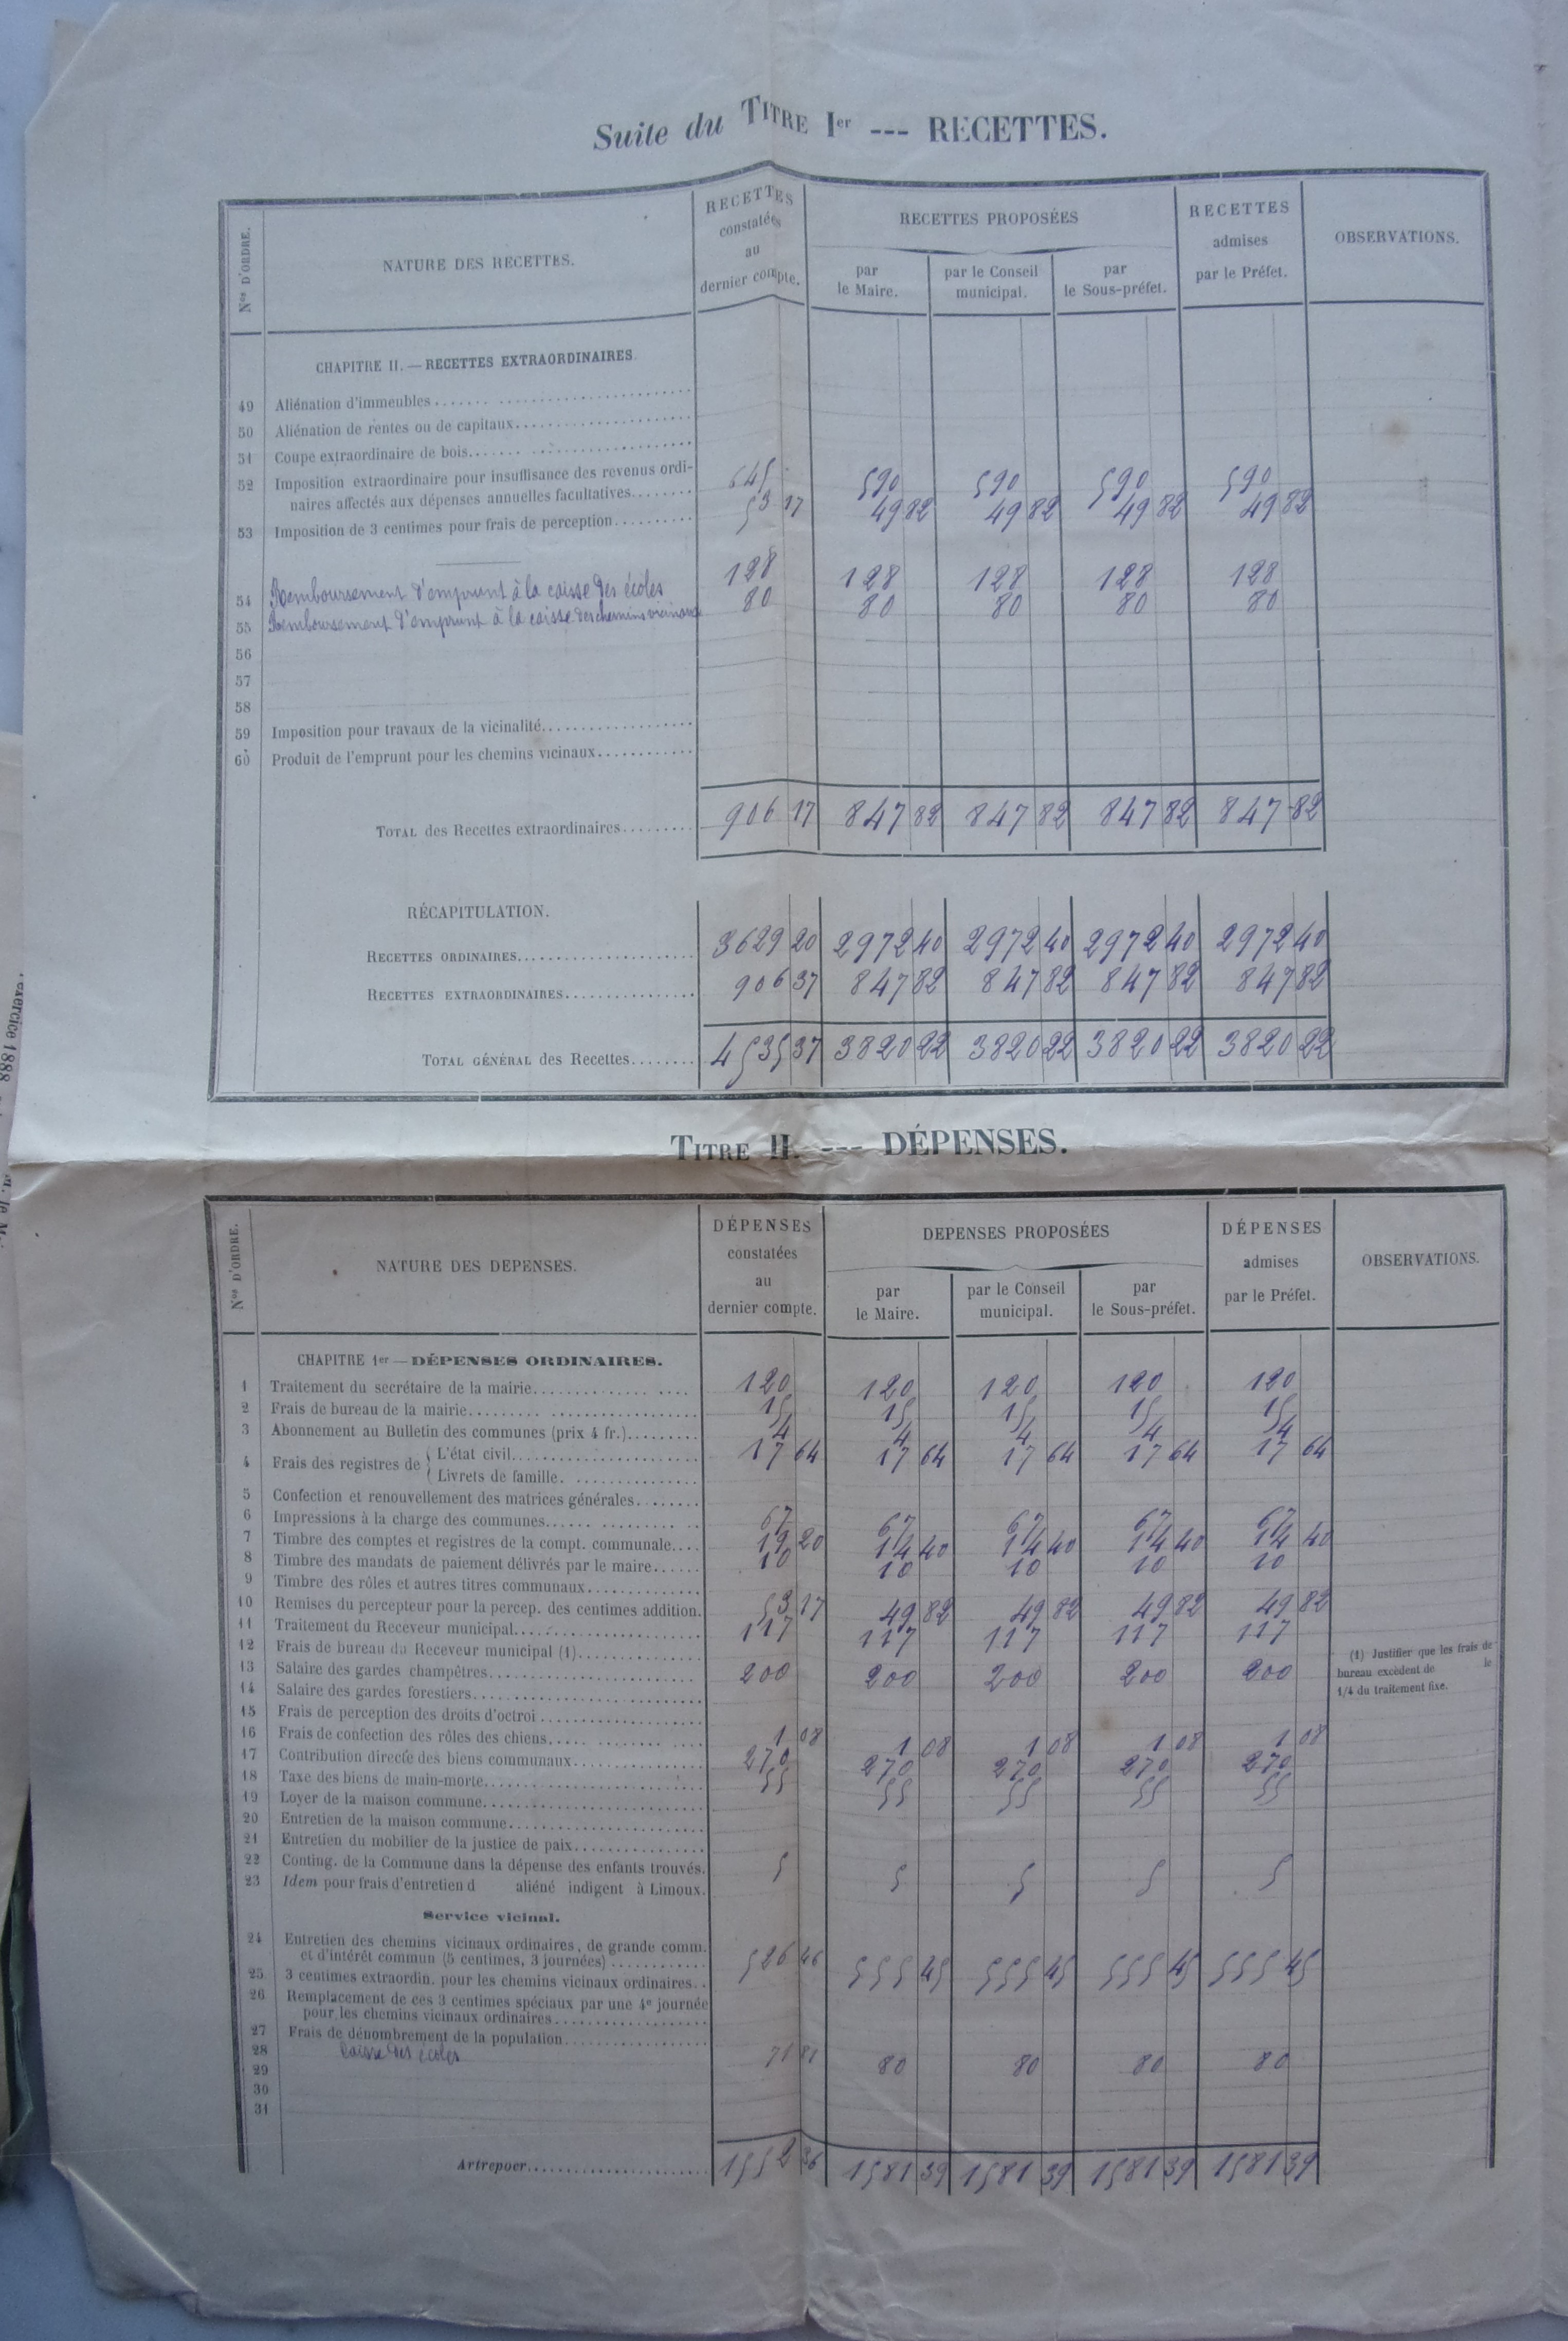 Suite du TITRE Ier --- RECETTES.
Nos D'ORDRE.
NATURE DES RECETTES.
RECETTES constatées au dernier compte.
RECETTES PROPOSÉES
par le Maire.
par le Conseil municipal.
par le Sous-préfet.
RECETTES admises par le Préfet.
OBSERVATIONS.
CHAPITRE II. — RECETTES EXTRAORDINAIRES.
49 Aliénation d'immeubles
50 Aliénation de rentes ou de capitaux
51 Coupe extraordinaire de bois
52 Imposition extraordinaire pour insuffisance des revenus ordi-
naires affectés aux dépenses annuelles facultatives 645 590 590 590 590
53 Imposition de 3 centimes pour frais de perception 53 17 49 82 49 82 49 82 49 82
54 Remboursement d'emprunt à la caisse des écoles 128 128 128 128 128
55 Remboursement d'emprunt à la caisse des chemins vicinaux 80 80 80 80 80
56
57
58
59 Imposition pour travaux de la vicinalité
60 Produit de l'emprunt pour les chemins vicinaux
TOTAL des Recettes extraordinaires 906 17 847 82 847 82 847 82 847 82
RÉCAPITULATION.
RECETTES ORDINAIRES 3629 20 2972 40 2972 40 2972 40 2972 40
RECETTES EXTRAORDINAIRES 906 37 847 82 847 82 847 82 847 82
TOTAL GÉNÉRAL des Recettes 4535 37 3820 22 3820 22 3820 22 3820 22
TITRE II. --- DÉPENSES.
Nos D'ORDRE.
NATURE DES DEPENSES.
DÉPENSES constatées au dernier compte.
DEPENSES PROPOSÉES
par le Maire.
par le Conseil municipal.
par le Sous-préfet.
DÉPENSES admises par le Préfet.
OBSERVATIONS.
CHAPITRE 1er — DÉPENSES ORDINAIRES.
1 Traitement du secrétaire de la mairie 120 120 120 120 120
2 Frais de bureau de la mairie 15 15 15 15 15
3 Abonnement au Bulletin des communes (prix 4 fr.) 4 4 4 4 4
4 Frais des registres de { L'état civil 17 64 17 64 17 64 17 64 17 64
Livrets de famille.
5 Confection et renouvellement des matrices générales
6 Impressions à la charge des communes 67 67 67 67 67
7 Timbre des comptes et registres de la compt. communale 19 20 14 40 14 40 14 40 14 40
8 Timbre des mandats de paiement délivrés par le maire 10 10 10 10 10
9 Timbre des rôles et autres titres communaux
10 Remises du percepteur pour la percep. des centimes addition. 53 17 49 82 49 82 49 82 49 82
11 Traitement du Receveur municipal 117 117 117 117 117
12 Frais de bureau du Receveur municipal (1)
(1) Justifier que les frais de
bureau excèdent de le
1/4 du traitement fixe.
13 Salaire des gardes champêtres 200 200 200 200 200
14 Salaire des gardes forestiers
15 Frais de perception des droits d'octroi
16 Frais de confection des rôles des chiens 1 08 1 08 1 08 1 08 1 08
17 Contribution directe des biens communaux 270 270 270 270 270
18 Taxe des biens de main-morte 55 55 55 55 55
19 Loyer de la maison commune
20 Entretien de la maison commune
21 Entretien du mobilier de la justice de paix
22 Conting. de la Commune dans la dépense des enfants trouvés. 5 5 5 5 5
23 Idem pour frais d'entretien d aliéné indigent à Limoux.
Service vicinal.
24 Entretien des chemins vicinaux ordinaires, de grande comm.
et d'intérêt commun (5 centimes, 3 journées) 526 46 555 45 555 45 555 45 555 45
25 3 centimes extraordin. pour les chemins vicinaux ordinaires
26 Remplacement de ces 3 centimes spéciaux par une 4e journée
pour les chemins vicinaux ordinaires
27 Frais de dénombrement de la population
28 Caisse des écoles 71 81 80 80 80 80
29
30
31
A reporter 1552 36 1581 39 1581 39 1581 39 1581 39